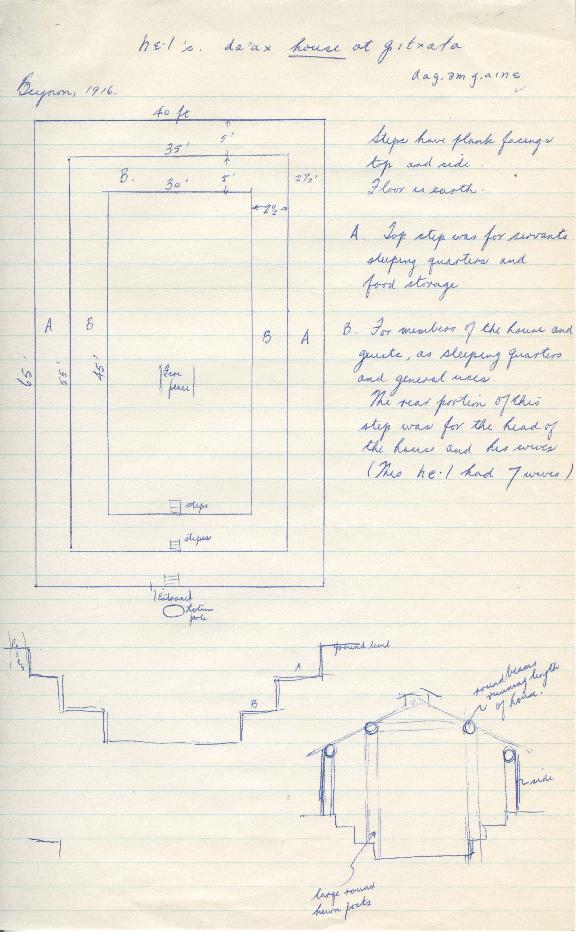 hɛ·l's. da·ax house at gitxała
dag.am g.ainɛ
Beynon, 1916.
40 ft
5'
35'
B.
30'
5'
2½'
2½
Steps have plank facings
top and side.
Floor is earth.
A. Top step was for servants
sleeping quarters and
food storage
B. For members of the house and
guests, as sleeping quarters
and general uses.
The rear portion of this
step was for the head of
the house and his wives
(This hɛ·l had 7 wives)
A
B
B
A
65'
55'
45'
Fire
place
steps
stepes
Entrance
totem
pole
ground level
A
B
round beams
running length
of house.
side
large round
hewn posts